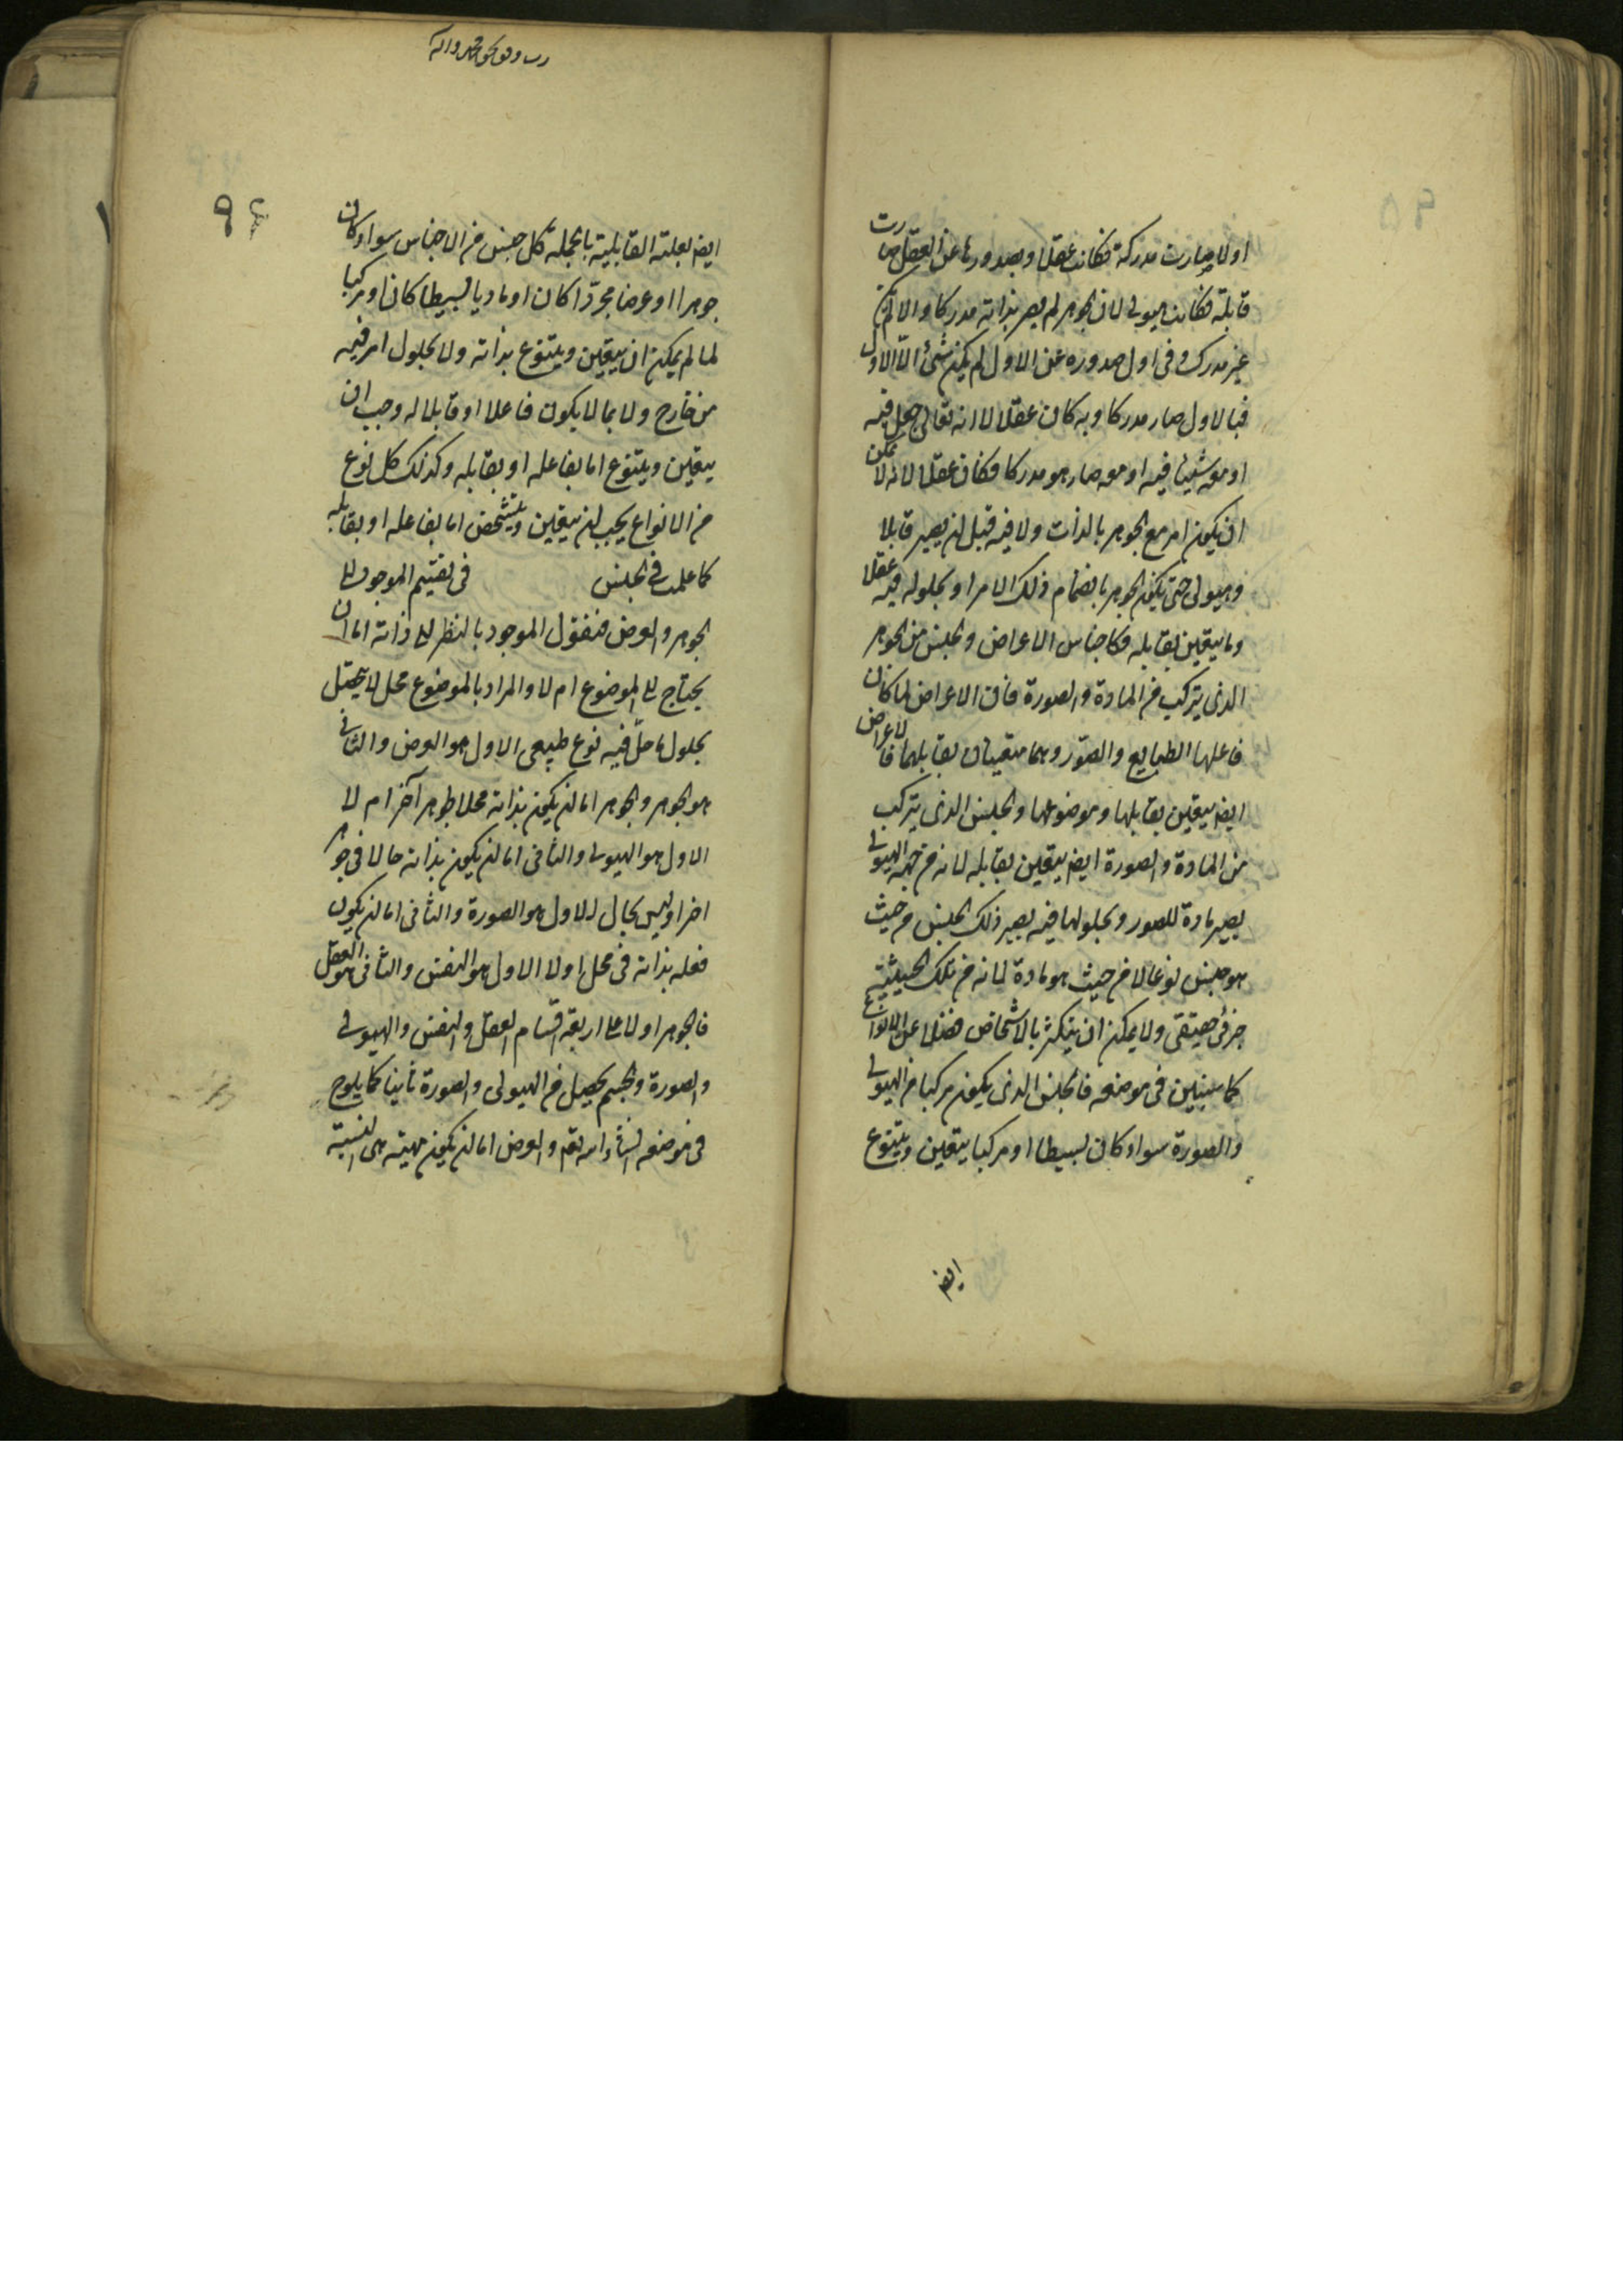 اولا صارت مدركة فكانت عقلا وبصدورها عن العقل صارت
قابلة فكانت هيولى لان الجوهر لم يصر بذاته مدركا والا لم يكن
غير مدرك وفى اول صدوره عن الاول لم يكن شئ الا الاول
فبالاول صار مدركا وبه كان عقلا لا انه تعالى جعل فيه
او معه شيئا فيه او معه صار هو مدركا فكان عقلا لانه لا يمكن
ان يكون امر مع الجوهر بالذات ولا فيه قبل ان يصير قابلا
وهيولى حتى يكون الجوهر بانضمام ذلك الامر او بحلوله فيه عقلا
وما يتعين بقابله فكاجناس الاعراض والجنس من الجوهر
الذى يتركب من المادة والصورة فان الاعراض لما كان
فاعلها الطبايع والصور وهما متعينان بقابلهما فالاعراض
ايض يتعين بقابلها وموضوعها والجنس الذى يتركب
من المادة والصورة ايض يتعين بقابله لانه من جهة الهيولى
يصير مادة للصور وبحلولها فيه يصير ذلك الجنس من حيث
هو جنس نوعا لا من حيث هو مادة لانه من تلك الحيثية
جزئى حقيقى ولا يمكن ان يتكثر بالاشخاص فضلا عن الانواع
كما سيتبين فى موضعه فالجنس الذى يكون مركبا من الهيولى
والصورة سواء كان بسيطا او مركبا يتعين ويتنوع
ايض
٩٦
ايض بعلته القابلية بالجملة كل جنس من الاجناس سواء كان
جوهرا او عرضا مجردا كان او ماديا بسيطا كان او مركبا
لما لم يمكن ان يتعين ويتنوع بذاته ولا بحلول امر فيه
من خارج ولا بما لا يكون فاعلا او قابلا له وجب ان
يتعين ويتنوع اما بفاعله او بقابله وكذلك كل نوع
من الانواع يجب ان يتعين ويتشخص اما بفاعله او بقابله
كما علمت فى الجنس فى تقسيم الموجود الى
الجوهر والعرض فنقول الموجود بالنظر الى ذاته اما ان
يحتاج الى الموضوع ام لا والمراد بالموضوع محل لا يتحصل
بحلول ما حل فيه نوع طبيعى الاول هو العرض والثانى
هو الجوهر والجوهر اما ان يكون بذاته محلا لجوهر آخر ام لا
الاول هو الهيولى والثانى اما ان يكون بذاته حالا فى جوهر
اخر او ليس بحال الاول هو الصورة والثانى اما ان يكون
فعله بذاته فى محل او لا الاول هو النفس والثانى هو العقل
فالجوهر اولا على اربعة اقسام العقل والنفس والهيولى
والصورة والجسم يحصل من الهيولى والصورة ثانيا كما يلوح
فى موضعه انشاء الله تعم والعرض اما ان يكون مهيته هى النسبة